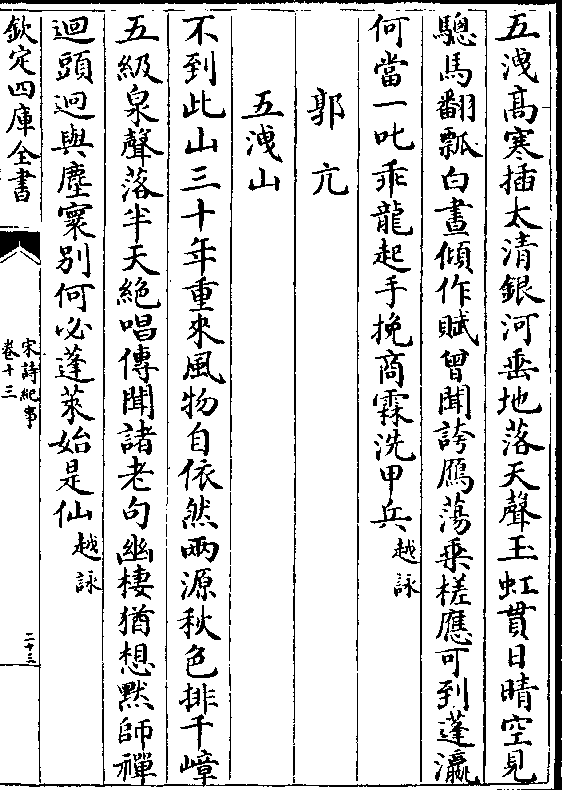 五洩高寒插太清銀河垂地落天聲玉虹貫日晴空見
驄馬翻瓢白晝傾作賦曾聞誇鴈蕩乗槎應可到蓬瀛
何當一叱乖龍起手挽商霖洗甲兵越詠
郭亢
五洩山
不到此山三十年重來風物自依然兩源秋色排千嶂
五級泉聲落半天絶唱傳聞諸老句幽棲猶想黙師禪
迴頭迥與塵寰别何必蓬萊始是仙越詠
欽定四庫全書
宋詩紀事
卷十三
二十三